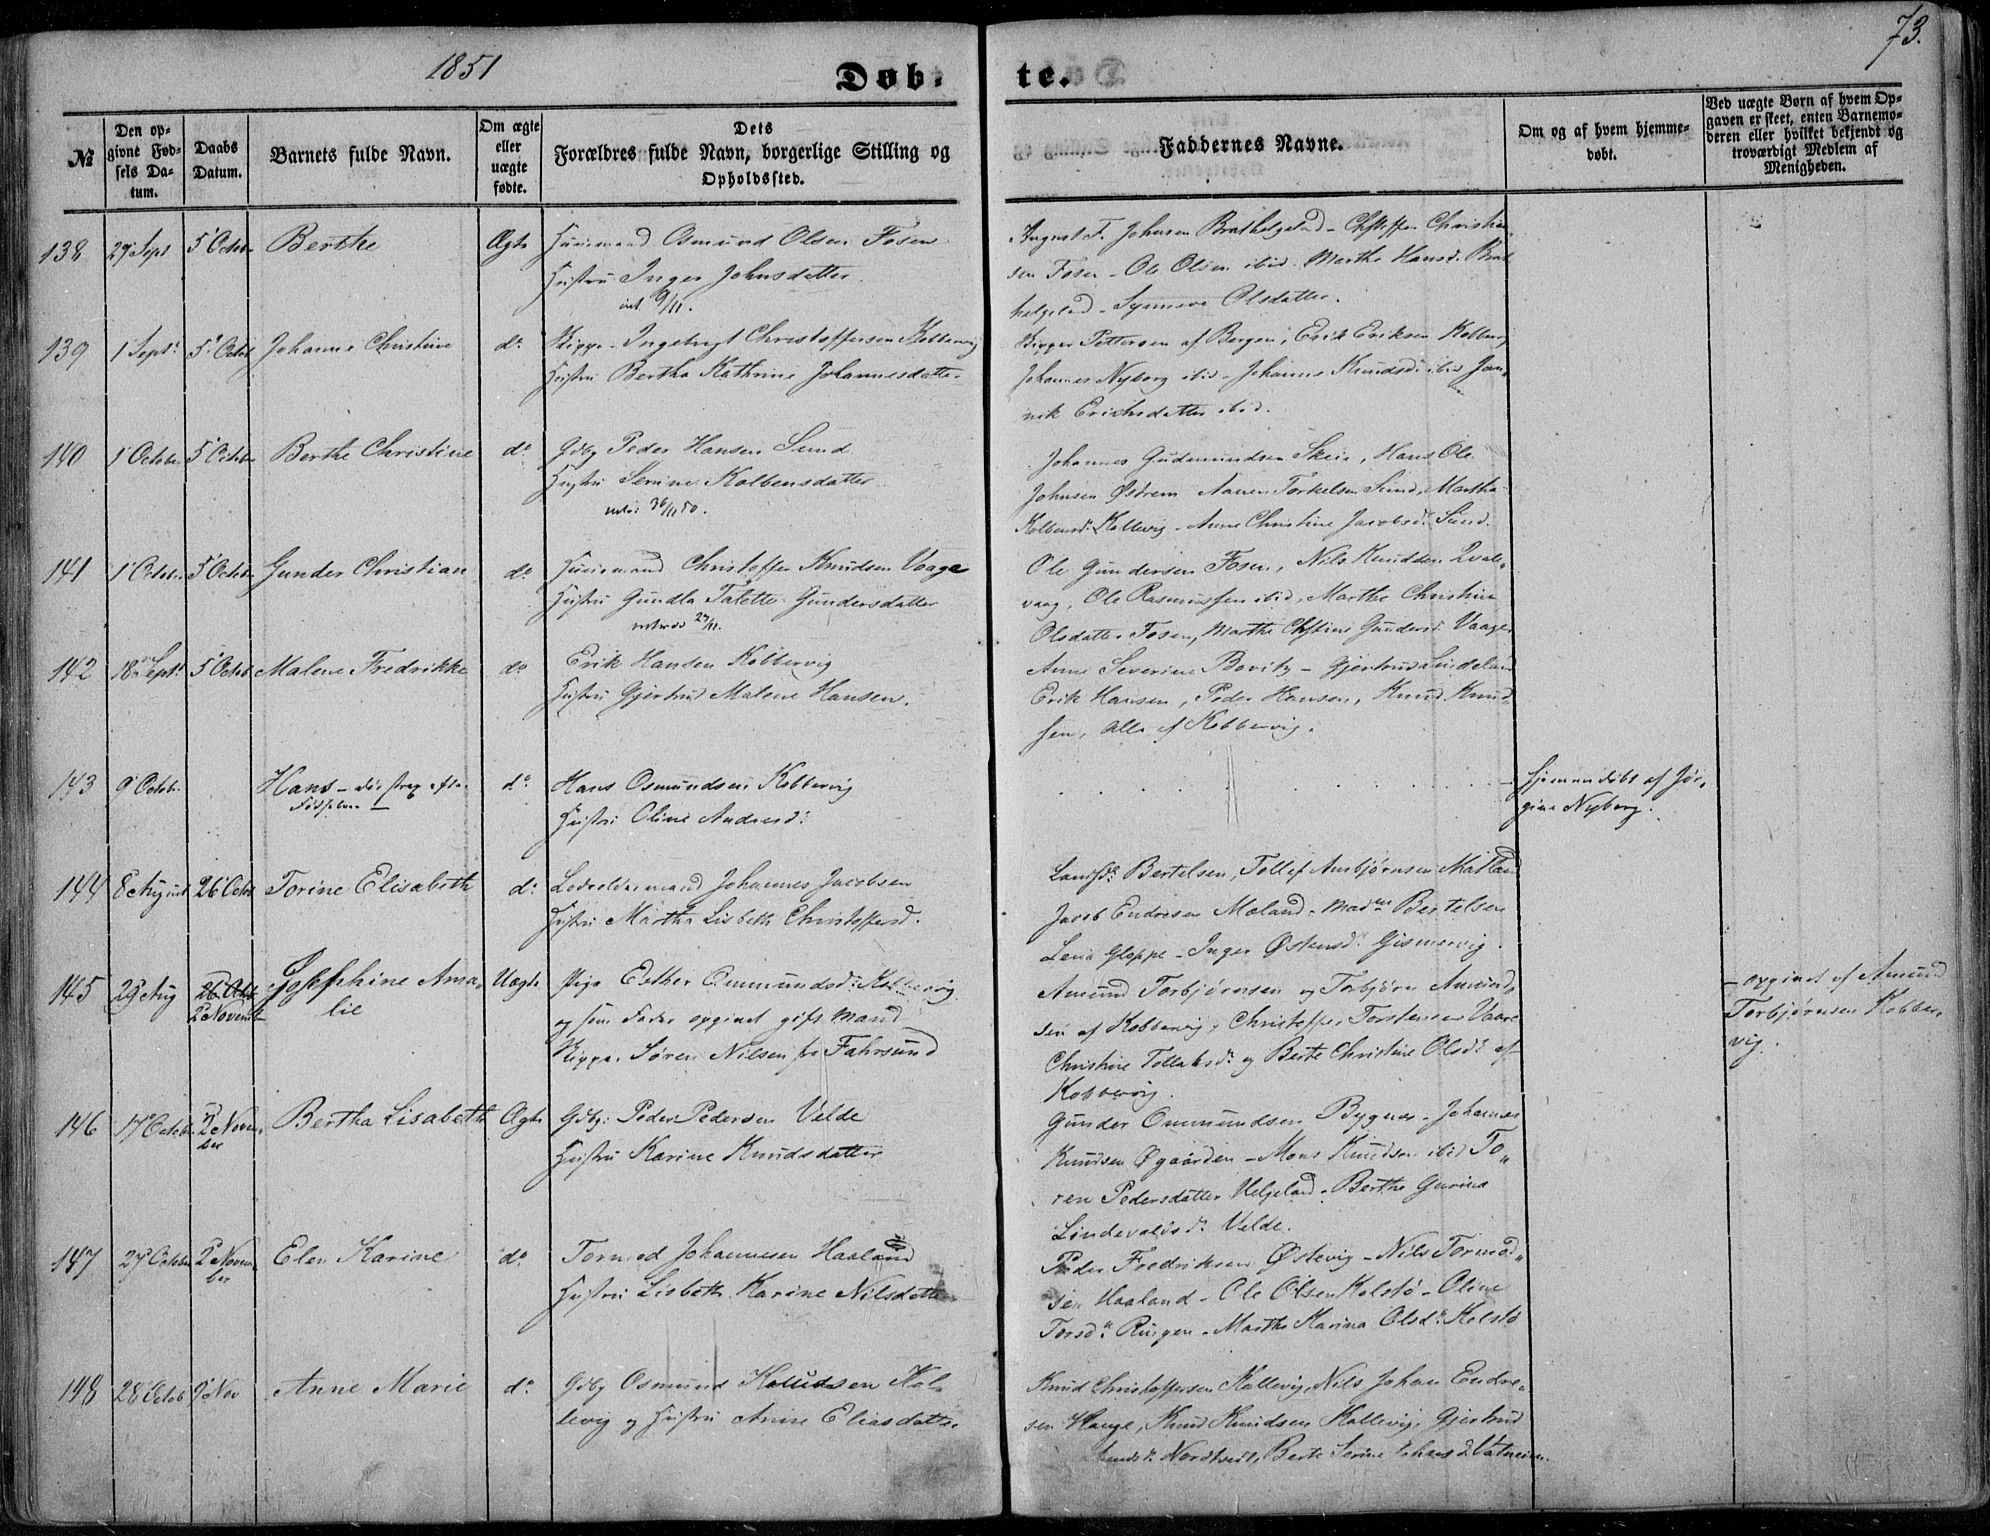 1851
Døb-
te.
73.
№
Den op-
givne Fød-
sels Da-
tum.
Daabs
Datum.
Barnets fulde Navn.
Om ægte
eller
uægte
fødte.
Dets
Forældres fulde Navn, borgerlige Stilling og
Opholdssted.
Faddernes Navne.
Om og af hvem hjemme-
døbt.
Ved uægte Børn af hvem Op-
gaven er skeet, enten Barnemo-
deren eller hvilket bekjendt og
troværdigt Medlem af
Menigheden.
138 29 Sept 5 Octobr Berthe Ægte Huusmand Osmund Olsen Fosen
Hustru Inger Johnsdatter
9/11.
August F. Johnsen Brathelgeland - Christian
sen Fosen - Ole Olsen ibid. Marthe Hansd. Brat
helgeland - Synneva Olsdatter.
139 1 Septr 5 Octob Johanne Christine do Skipper Ingebregt Christoffersen Kobbervig
Hustru Bertha Kathrine Johannesdatter
Skipper Pettersen af Bergen, Erik Eriksen Kobberv
Johannes Nyborg ibid - Johanne Knudsd. ibid Jan
nik Erichsdatter ibid.
140 1 Octobr 5 Octobr Berthe Christine do Gdbg Peder Hansen Sund
Hustru Serine Kolbensdatter
Johannes Gudmundsen Skeie, Hans Ole
Johnsen Østrem Aanen Torkelsen Sund, Martha
Kolbensdr Kallevig - Anne Christine Jacobsdr Sund.
141 1 Octobr 5 Octobr Gunder Christian do Huusmand Christoffer Knudsen Vaage
Hustru Gundla Talette Gundersdatter
Ole Gundersen Fosen, Nils Knudsen Qval-
vaag, Ole Rasmussen ibid, Marthe Christine
Olsdatter Fosen, Marthe Chstine Gundersd. Vaage
142 18 Septr 5 Octob Malene Fredrikke do Erik Hansen Kobbervig
Hustru Gjertrud Malene Hansen.
Anne Severine Bovitz - Gjertrud Lindeland
Erik Hansen, Peder Hansen, Knud Knud
sen, alle af Kobbervig.
143 9 Octobr Hans - død strax efter
Fødselen - do Hans Osmundsen Kobbervig
Hustru Oline Andresdr
Hjemmedøbt af Jør-
gine Nyborg.
144 8 August 26 Octob Torine Elisabeth do Johannes Jacobsen
Hustru Martha Lisbeth Christoffersd.
Bertelsen, Tollef Ansbjørnsen Matland
Jacob Endresen Moland - Madme Bertelsen
Lena Gloppe - Inger Østensd. Gismervig.
145 29 Aug 26 Octb
2 Novemb Josephine Ama-
lie Uægte Pige Esther Ommundsdr Kobbervig
og som Fader opgivet gift Mand
Skipper Søren Nilsen fra Fahrsund
Amund Torbjørnsen og Torbjørn Amund
sen af Kobbervig, Christoffer Torstensen Vaare
Christine Tollaksdr og Berte Christine Olsdr af
Kobbervig.
- opgivet af Amund
Torbjørnsen Kobber-
vig.
146 17 Octobr 2 Novem-
ber Bertha Lisabeth Ægte Gdbg: Peder Pedersen Velde
Hustru Karine Knudsdatter
Gunder Ommundsen Bygnes - Johannes
Knudsen Øgaarden - Mons Knudsen ibid To-
ren Pedersdatter Helgeland - Berthe Gurine
Lindevaldsdr Velde.
147 27 Octobr 2 Novem-
ber Elen Karine do Tormod Johannesen Haaland
Hustru Lisbeth Karine Nilsdatter
Peder Fredriksen Østevig - Nils Tormod-
sen Haaland - Ole Olsen Kolstø - Oline
Torsdr Ringen - Marthe Karina Olsdr Kolstø
148 28 Octob 9 Nov Anne Marie do Gdbg Osmund Knudsen Kal-
levig og Hustru Anne Eliasdatter
Knud Christoffersen Kallevig, Nils Johan Endre-
sen Hauge, Knud Knudsen Kallevig, Gjertrud
Nordtvedt, Berte Serine Johansd. Vatneim